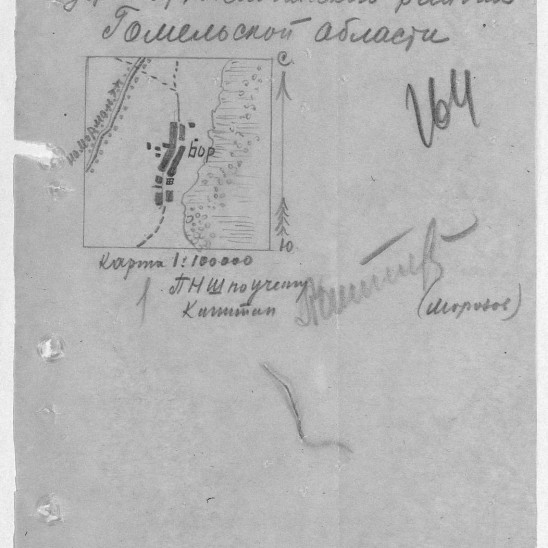 Гомельской области
С
164
Бор
Ю
Карта 1:100000
ПНШ по учету
Капитан
(Морозов)